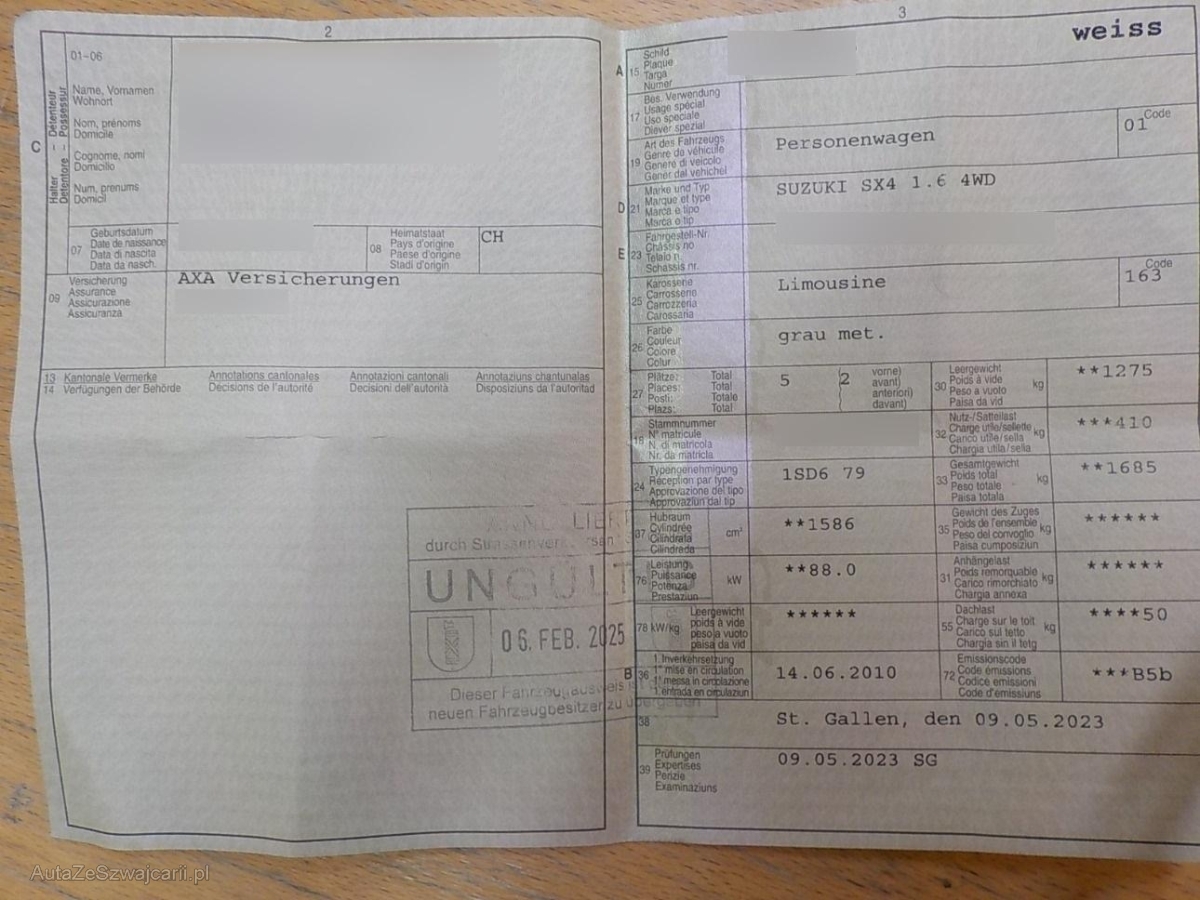 2
C
Halter – Detenteur
Detentore – Possessur
01-06
Name, Vornamen
Wohnort
Nom, prénoms
Domicile
Cognome, nomi
Domicilio
Num, prenums
Domicil
07
Geburtsdatum
Date de naissance
Data di nascita
Data da nasch.
08
Heimatstaat
Pays d'origine
Paese d'origine
Stadi d'origin
CH
09
Versicherung
Assurance
Assicurazione
Assicuranza
AXA Versicherungen
13 Kantonale Vermerke Annotations cantonales Annotazioni cantonali Annotaziuns chantunalas
14 Verfügungen der Behörde Décisions de l'autorité Decisioni dell'autorità Disposiziuns da l'autoritad
durch
06. FEB. 2025
Dieser Fahrzeugausweis
neuen Fahrzeugbesitzer zu übergeben
3
weiss
A 15
Schild
Plaque
Targa
Numer
17
Bes. Verwendung
Usage spécial
Uso speciale
Diever spezial
19
Art des Fahrzeugs
Genre de véhicule
Genere di veicolo
Gener dal vehichel
Personenwagen
Code
01
D 21
Marke und Typ
Marque et type
Marca e tipo
Marca e tip
SUZUKI SX4 1.6 4WD
E 23
Fahrgestell-Nr.
Châssis no
Telaio n.
Schassis nr.
25
Karosserie
Carrosserie
Carrozzeria
Carossaria
Limousine
Code
163
26
Farbe
Couleur
Colore
Colur
grau met.
27
Plätze: Total
Places: Total
Posti: Totale
Plazs: Total
5
2
vorne)
avant)
anteriori)
davant)
30
Leergewicht
Poids à vide
Peso a vuoto
Paisa da vid
kg
**1275
18
Stammnummer
N° matricule
N. di matricola
Nr. da matricla
32
Nutz-/Sattellast
Charge utile/sellette
Carico utile/sella
Chargia utila/sella
kg
***410
24
Typengenehmigung
Réception par type
Approvazione del tipo
Approvaziun dal tip
1SD6 79
33
Gesamtgewicht
Poids total
Peso totale
Paisa totala
kg
**1685
37
Hubraum
Cylindrée
Cilindrata
Cilindrada
cm³
**1586
35
Gewicht des Zuges
Poids de l'ensemble
Peso del convoglio
Paisa cumposiziun
kg
******
76
Leistung
Puissance
Potenza
Prestaziun
kW
**88.0
31
Anhängelast
Poids remorquable
Carico rimorchiato
Chargia annexa
kg
******
78 kW/kg
Leergewicht
poids à vide
peso a vuoto
paisa da vid
******
55
Dachlast
Charge sur le toit
Carico sul tetto
Chargia sin il tetg
kg
****50
B 36
1. Inverkehrsetzung
1re mise en circulation
1a messa in circolazione
1. entrada en circulaziun
14.06.2010
72
Emissionscode
Code émissions
Codice emissioni
Code d'emissiuns
***B5b
38
St. Gallen, den 09.05.2023
39
Prüfungen
Expertises
Perizie
Examinaziuns
09.05.2023 SG
AutaZeSzwajcarii.pl